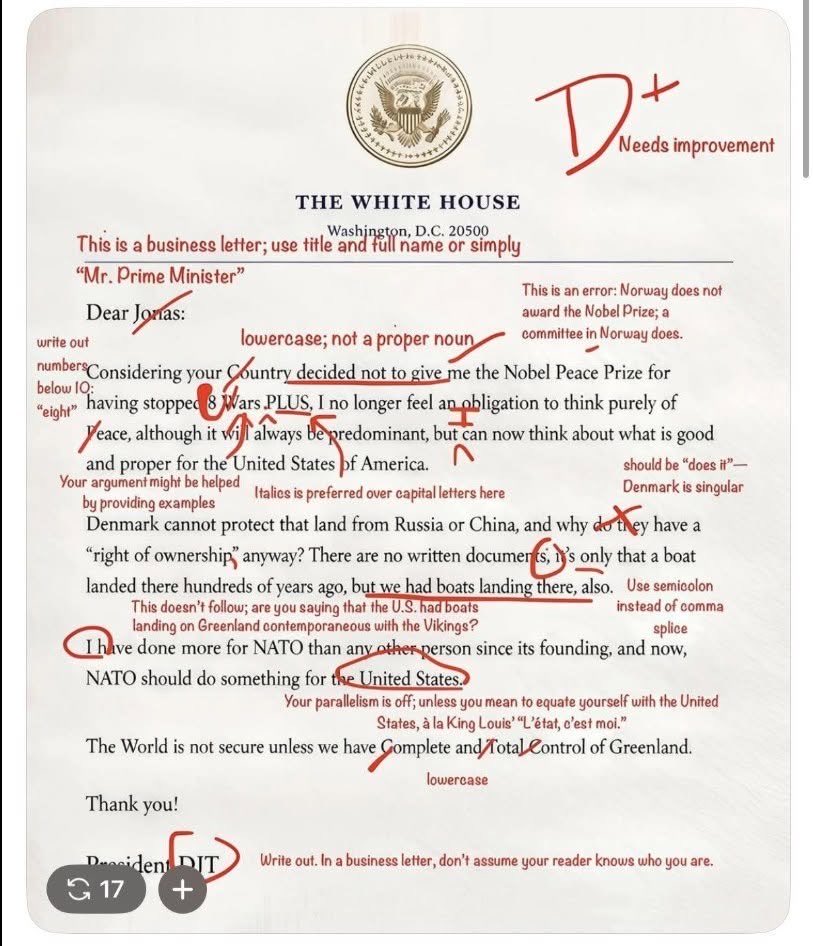 D+
Needs improvement
THE WHITE HOUSE
Washington, D.C. 20500
This is a business letter; use title and full name or simply
“Mr. Prime Minister”
Dear Jonas:
This is an error: Norway does not
award the Nobel Prize; a
committee in Norway does.
lowercase; not a proper noun
write out
numbers
below 10:
“eight”
Considering your Country decided not to give me the Nobel Peace Prize for
having stopped 8 Wars PLUS, I no longer feel an obligation to think purely of
I
Peace, although it will always be predominant, but can now think about what is good
and proper for the United States of America.
should be “does it”—
Denmark is singular
Your argument might be helped
by providing examples
Italics is preferred over capital letters here
Denmark cannot protect that land from Russia or China, and why do they have a
“right of ownership” anyway? There are no written documents, it’s only that a boat
landed there hundreds of years ago, but we had boats landing there, also.
Use semicolon
instead of comma
splice
This doesn’t follow; are you saying that the U.S. had boats
landing on Greenland contemporaneous with the Vikings?
I have done more for NATO than any other person since its founding, and now,
NATO should do something for the United States.
Your parallelism is off; unless you mean to equate yourself with the United
States, à la King Louis’ “L’état, c’est moi.”
The World is not secure unless we have Complete and Total Control of Greenland.
lowercase
Thank you!
President DJT
Write out. In a business letter, don’t assume your reader knows who you are.
17